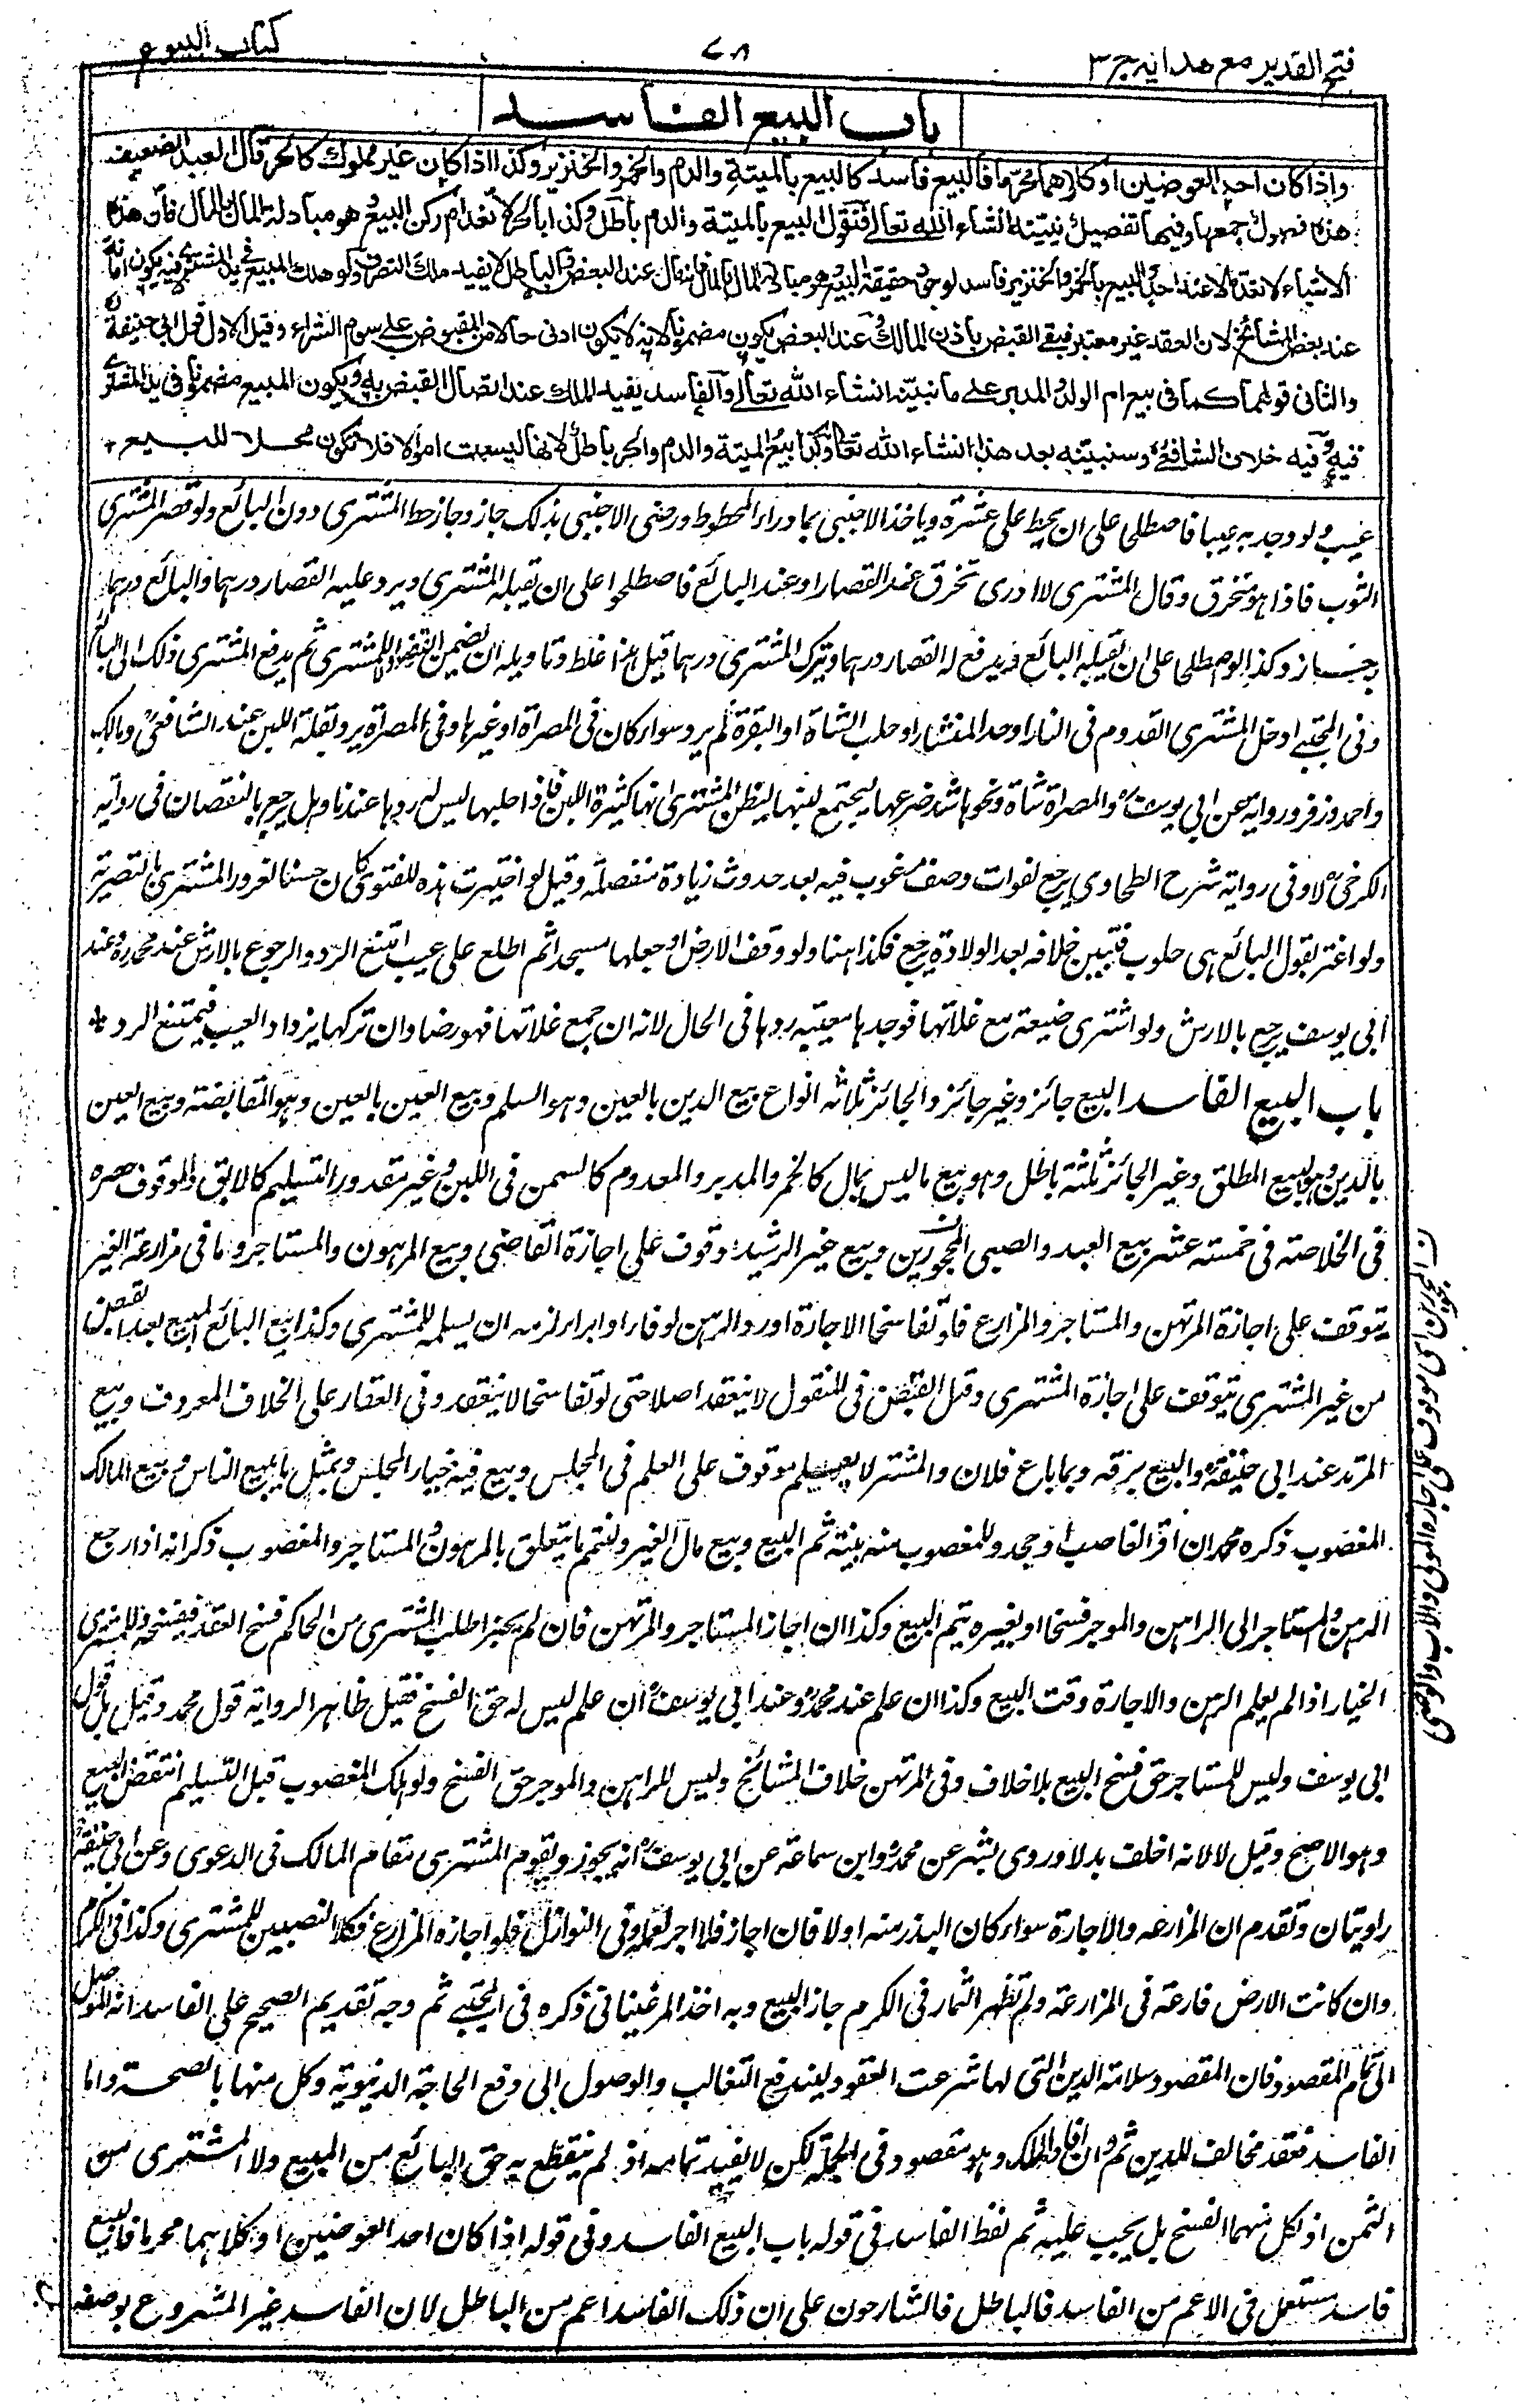 فتح القدير مع هدايه ج ٣
٧٨
كتاب البيوع
باب البيع الفاسد
واذا كان احد العوضين او كلاهما محرما فالبيع فاسد كالبيع بالميتة والدم والخمر والخنزير وكذا اذا كان غير مملوك كالحر قال العبد الضعيف
هذه فصول جمعها وفيها تفصيل نبيّنه انشاء الله تعالى فنقول البيع بالميتة والدم باطل وكذا بالحر لانعدام ركن البيع وهو مبادلة المال بالمال فان هذه
الاشياء لا تعد مالا عند احد والبيع بالخمر والخنزير فاسد لوجود حقيقة البيع وهو مبادلة المال بالمال فانه مال عند البعض والباطل لا يفيد ملك التصرف ولو هلك المبيع فى يد المشترى فيه يكون امانة
عند بعض المشائخ لان العقد غير معتبر فبقى القبض باذن المالك وعند البعض يكون مضمونا لانه لا يكون ادنى حالا من المقبوض على سوم الشراء وقيل الاول قول ابى حنيفة
والثانى قولهما كما فى بيع ام الولد والمدبر على ما نبيّنه انشاء الله تعالى والفاسد يفيد الملك عند اتصال القبض به ويكون المبيع مضمونا فى يد المشترى
فيه وفيه خلاف الشافعى وسنبيّنه بعد هذا انشاء الله تعالى وكذا بيع الميتة والدم والحر باطل لانها ليست اموالا فلا تكون محلا للبيع
عيب ولو وجد به عيبا فاصطلحا على ان يحط على عشرة وياخذ الاجنبى بما وراء المحطوط ورضى الاجنبى بذلك جاز وجاز حط المشترى دون البائع ولو قصر المشترى
الثوب فاذا هو متخرق وقال المشترى لا ادرى تخرق عند القصار او عند البائع فاصطلحوا على ان يقبله المشترى ويرد عليه القصار درهما والبائع درهما
جاز وكذا لو اصطلحا على ان يقبله البائع ويدفع له القصار درهما وترك المشترى درهما قيل هذا غلط وتاويله ان يضمن القصار اولا للمشترى ثم يدفع المشترى ذلك الى البائع
وفى المجتبى ادخل المشترى القدوم فى النار او حد المنشار او حلب الشاة او البقرة لم يرد سواء كان فى المصراة او غيرها وفى المصراة يرد بقلة اللبن عند الشافعى ومالك
واحمد وزفر ورواية عن ابى يوسف والمصراة شاة ونحوها شد ضرعها ليجتمع لبنها ليظن المشترى انها كثيرة اللبن فاذا حلبها ليس له ردها عندنا وهل يرجع بالنقصان فى رواية
الكرخى لا وفى رواية شرح الطحاوى يرجع لفوات وصف مرغوب فيه بعد حدوث زيادة منفصلة وقيل لو اختيرت هذه للفتوى كان حسنا لغرور المشترى بالتصرية
ولو اغتر بقول البائع هى حلوب فتبين خلافه بعد الولادة يرجع فكذا هنا ولو وقف الارض او جعلها مسجدا ثم اطلع على عيب امتنع الرد والرجوع بالارش عند محمد وعند
ابى يوسف يرجع بالارش ولو اشترى ضيعة مع غلاتها فوجدها معيبة ردها فى الحال لانه ان جمع غلاتها فهو رضا وان تركها يزداد العيب فيمتنع الرد
باب البيع الفاسد البيع جائز وغير جائز والجائز ثلاثة انواع بيع الدين بالعين وهو السلم وبيع العين بالعين وهو المقايضة وبيع العين
بالدين وهو البيع المطلق وغير الجائز ثلثة باطل وهو بيع ما ليس بمال كالخمر والمدبر والمعدوم كالسمن فى اللبن وغير مقدور التسليم كالابق والموقوف حصره
فى الخلاصة فى خمسة عشر بيع العبد والصبى المحجورين وبيع غير الرشيد موقوف على اجازة القاضى وبيع المرهون والمستاجر وما فى مزارعة الغير
يتوقف على اجازة المرتهن والمستاجر والمزارع فلو تفاسخا الاجارة او رد الرهن لوفاء او ابراء لزمه ان يسلمه للمشترى وكذا بيع البائع المبيع بعد القبض
من غير المشترى يتوقف على اجازة المشترى وقبل القبض فى المنقول لا ينعقد اصلا حتى لو تفاسخا لا ينعقد وفى العقار على الخلاف المعروف وبيع
المرتد عند ابى حنيفة والبيع برقمه وبما باع فلان والمشترى لا يعلم موقوف على العلم فى المجلس وبيع فيه خيار المجلس وبمثل ما يبيع الناس وبيع المالك
المغصوب ذكره محمد ان اقر الغاصب او جحد وللمغصوب منه بينة ثم البيع وبيع مال الغير ولنتمم ما يتعلق بالمرهون والمستاجر والمغصوب ذكر انه اذا رجع
الرهن والمستاجر الى الراهن والموجر فسخا او بغيره يتم البيع وكذا ان اجاز المستاجر والمرتهن فان لم يجيزا طلب المشترى من الحاكم فسخ العقد فيفسخه وللمشترى
الخيار اذا لم يعلم الرهن والاجارة وقت البيع وكذا ان علم عند محمد وعند ابى يوسف ان علم ليس له حق الفسخ فقيل ظاهر الرواية قول محمد وقيل بل قول
ابى يوسف وليس للمستاجر حق فسخ البيع بلا خلاف وفى المرتهن خلاف المشائخ وليس للراهن والموجر حق الفسخ ولو هلك المغصوب قبل التسليم انتقض البيع
وهو الاصح وقيل لا لانه اخلف بدلا وروى بشر عن محمد وابن سماعة عن ابى يوسف انه يجوز ويقوم المشترى مقام المالك فى الدعوى وعن ابى حنيفة
روايتان وتقدم ان المزارعة والاجارة سواء كان البذر منه اولا فان اجاز فلا اجر لعمله وفى النوازل فلو اجازه المزارع فكلا النصيبين للمشترى وكذا فى الكرم
وان كانت الارض فارغة فى المزارعة ولم تظهر الثمار فى الكرم جاز البيع وبه اخذ المرغينانى ذكره فى المجتبى ثم وجه تقديم الصحيح على الفاسد انه الموصل
الى تمام المقصود فان المقصود سلامة الدين التى لها شرعت العقود ليندفع التغالب والوصول الى دفع الحاجة الدنيوية وكل منها بالصحة واما
الفاسد فعقد مخالف للدين ثم وان افاد الملك وهو مقصود فى الجملة لكن لا يفيد تمامه اذ لم ينقطع به حق البائع من المبيع ولا المشترى من
الثمن اذ لكل منهما الفسخ بل يجب عليه ثم لفظ الفاسد فى قوله باب البيع الفاسد وفى قوله اذا كان احد العوضين او كلاهما محرما فالبيع
فاسد مستعمل فى الاعم من الفاسد فالباطل فالشارحون على ان ذلك الفاسد اعم من الباطل لان الفاسد غير المشروع بوصفه